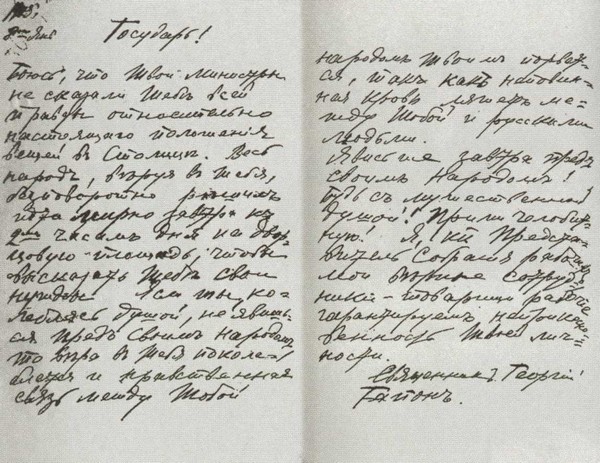 8го Янв
Государь!
Боюсь, что Твои министры
не сказали Тебѣ всей
правды относительно
настоящаго положенія
вещей въ Столицѣ. Весь
народъ, вѣруя въ Тебя,
безповоротно рѣшилъ
идти мирно завтра къ
2мъ часамъ дня на двор-
цовую площадь, чтобы
высказать Тебѣ свои
нужды. Если ты, ко-
леблясь душой, не явишь-
ся предъ своимъ народомъ,
то вѣра въ Тебя поколе-
блется и нравственная
связь между Тобой
народомъ Твоимъ порвет-
ся, такъ какъ неповин-
ная кровь ляжетъ ме-
жду Тобой и русскими
людьми.
Явись же завтра предъ
своимъ Народомъ!
Будь съ мужественной
душой! Прими челобит-
ную! Я, Предста-
витель Собранія рабочихъ
мои вѣрные сотруд-
ники - товарищи рабочіе
гарантируемъ неприкосно-
венность Твоей лич-
ности.
Священникъ Георгій
Гапонъ.